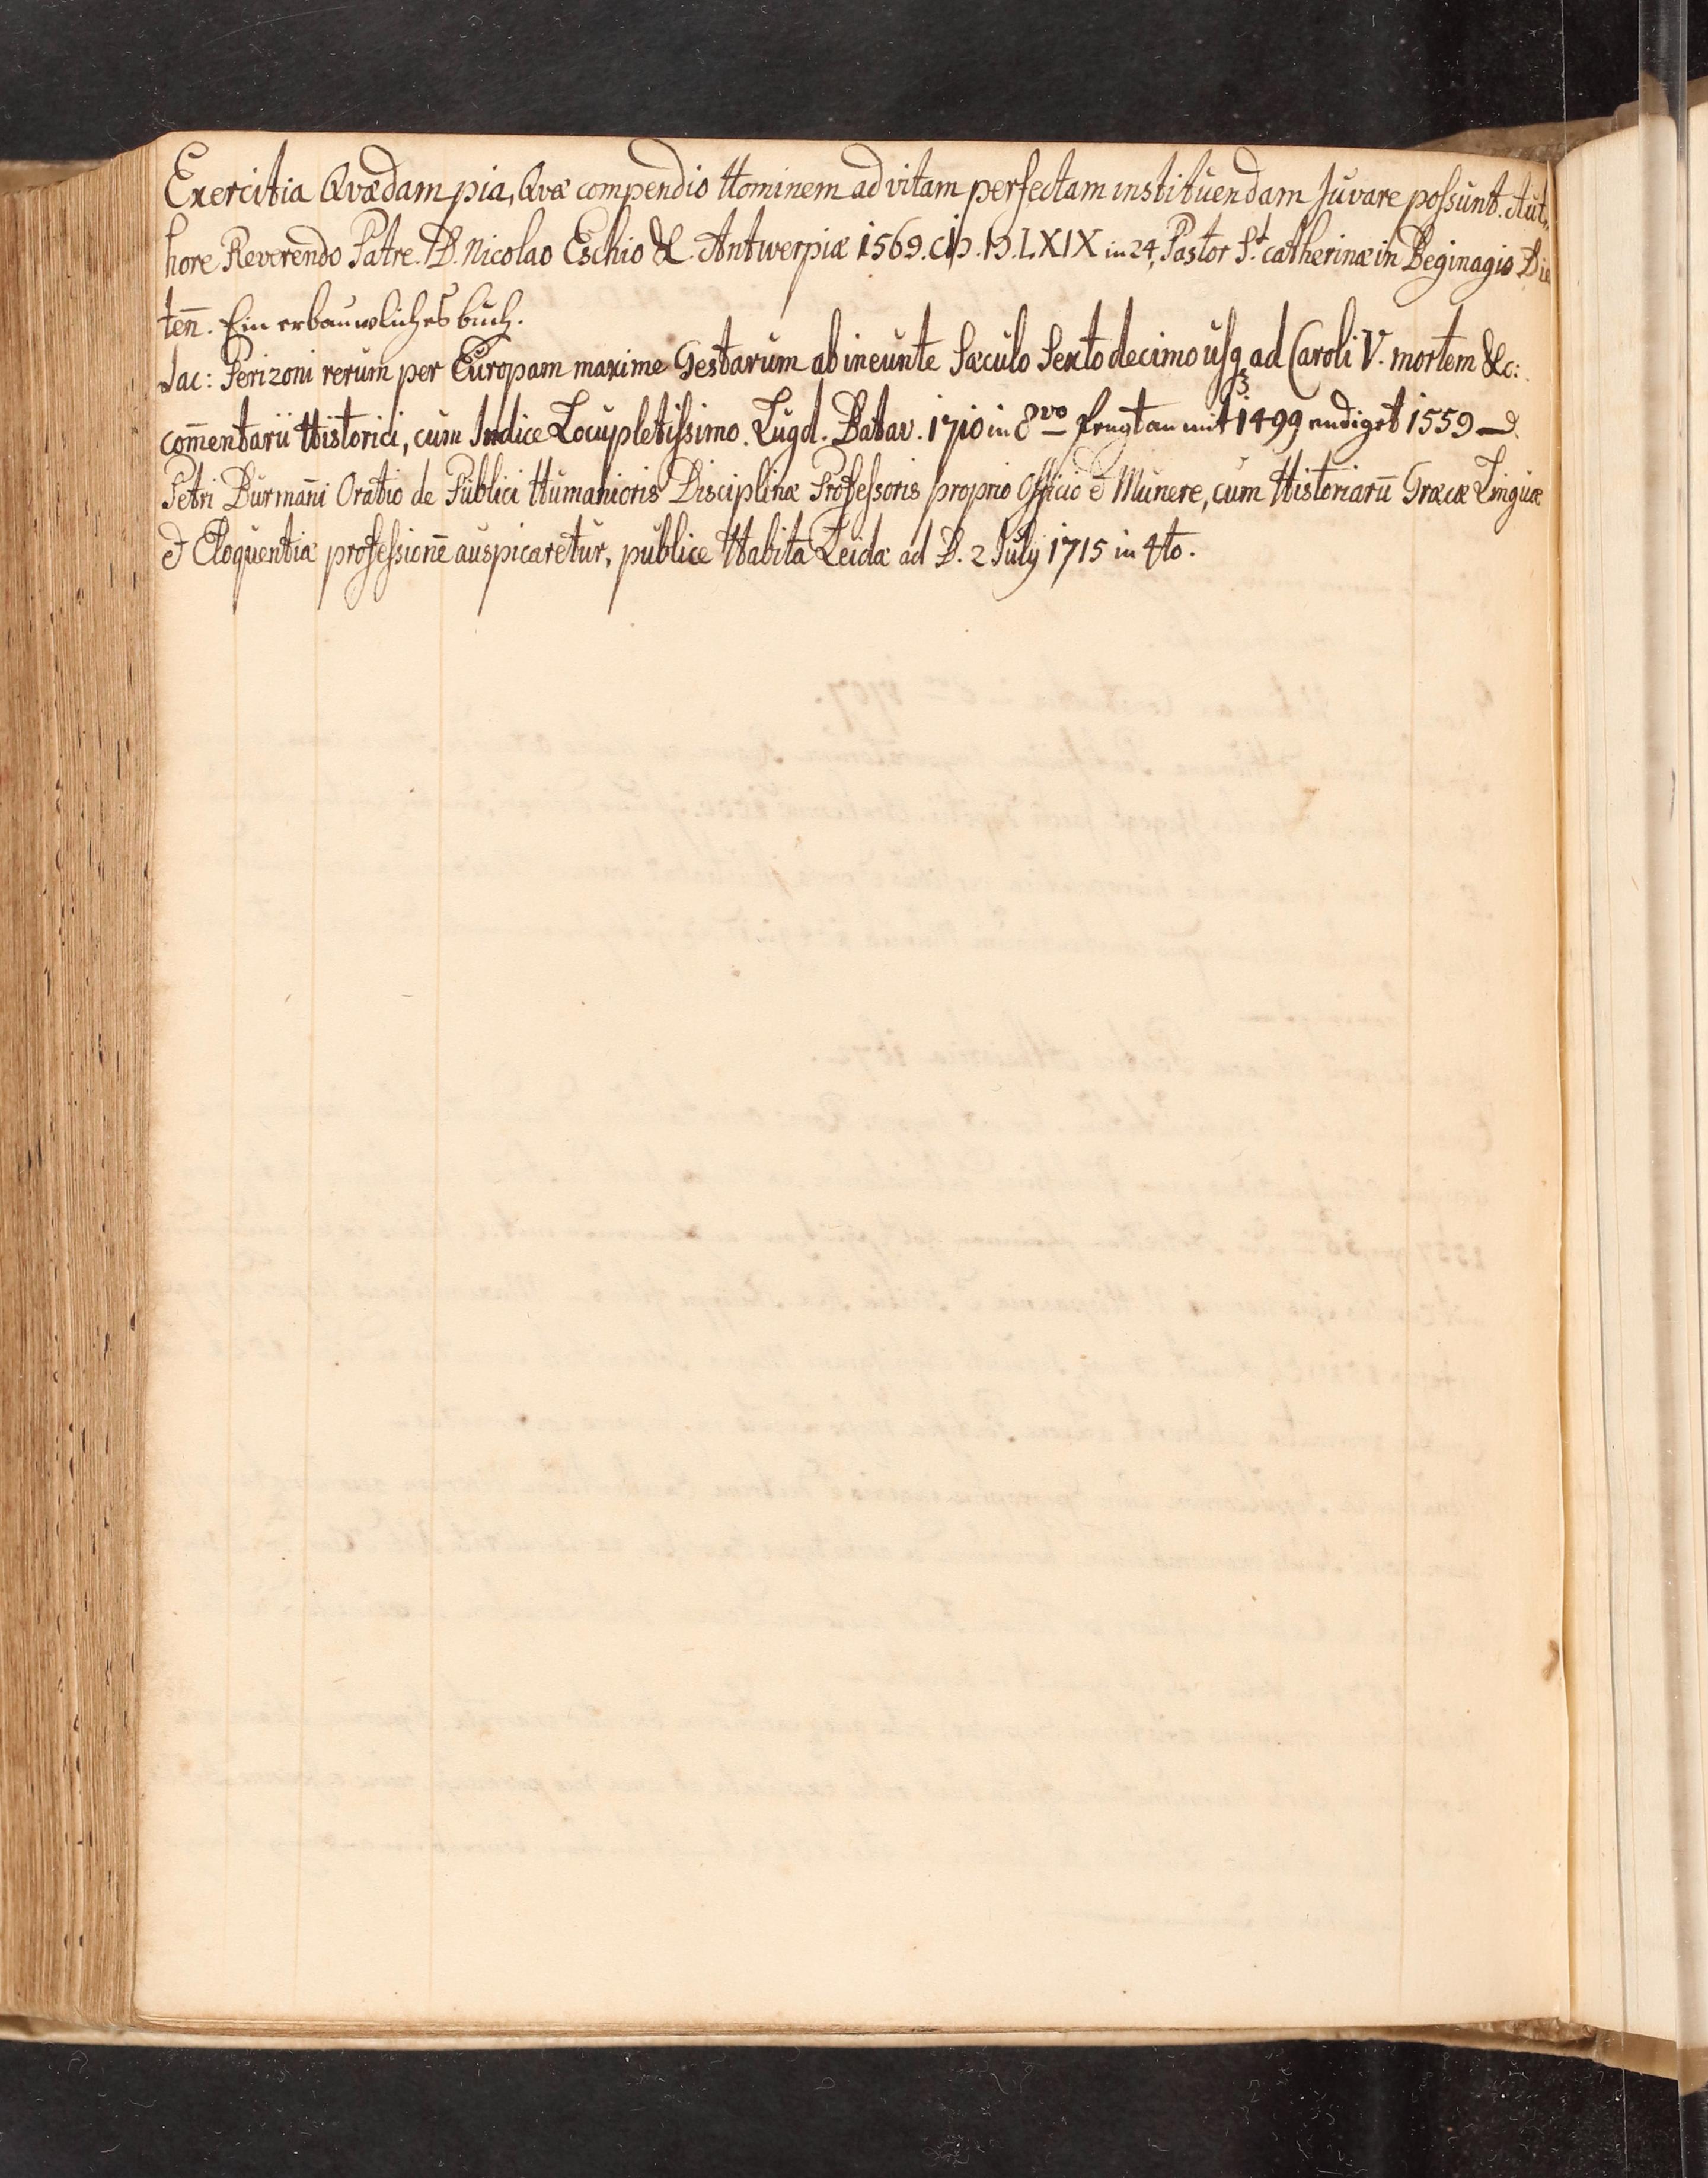 Exercitia Qvædam pia, Qvæ compendio Hominem ad vitam perfectam instituendam Juvare possunt. Aut,,
hore Reverendo Patre. D. Nicolao Eschio &. Antwerpiæ 1569. CIƆ.IƆ.LXIX in 24, Pastor St. catherinæ in Beginagio Die
ten̄. Ein erbauwliches buch.
Jac: Perizoni rerum per Europam maxime Gestarum ab ineunte Sæculo Sexto decimo usq3 ad Caroli V. mortem &c:
com̄entarii Historici, cum Indice Locupletissimo. Lugd. Batav. 1710 in 8vo fengt an mit 1499 endiget 1559
Petri Burman̄i Oratio de Publici Humanioris Disciplinæ Professoris proprio Officio è Munere, cum Historiarū Græcæ Linguæ
& Eloquentiæ professionē auspicaretur, publice Habita Leidæ ad D. 2 July 1715 in 4to.